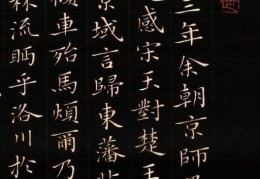 三年余朝京師
感宋玉對楚王
京域言歸東藩背
傾車殆馬煩爾乃
林流眄乎洛川於